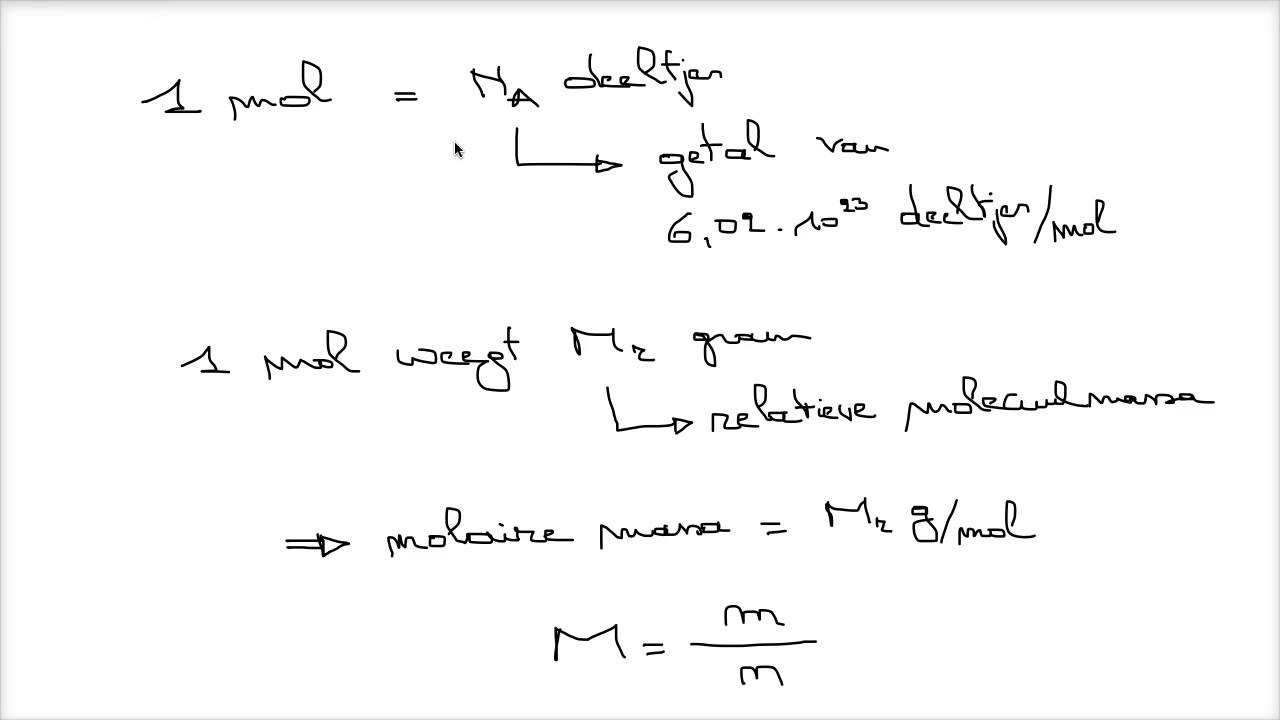 1 mol = N_A deeltjes
getal van
6,02 . 10^23 deeltjes/mol
1 mol weegt M_r gram
relatieve molecuulmassa
⇒ molaire massa = M_r g/mol
M = m/n